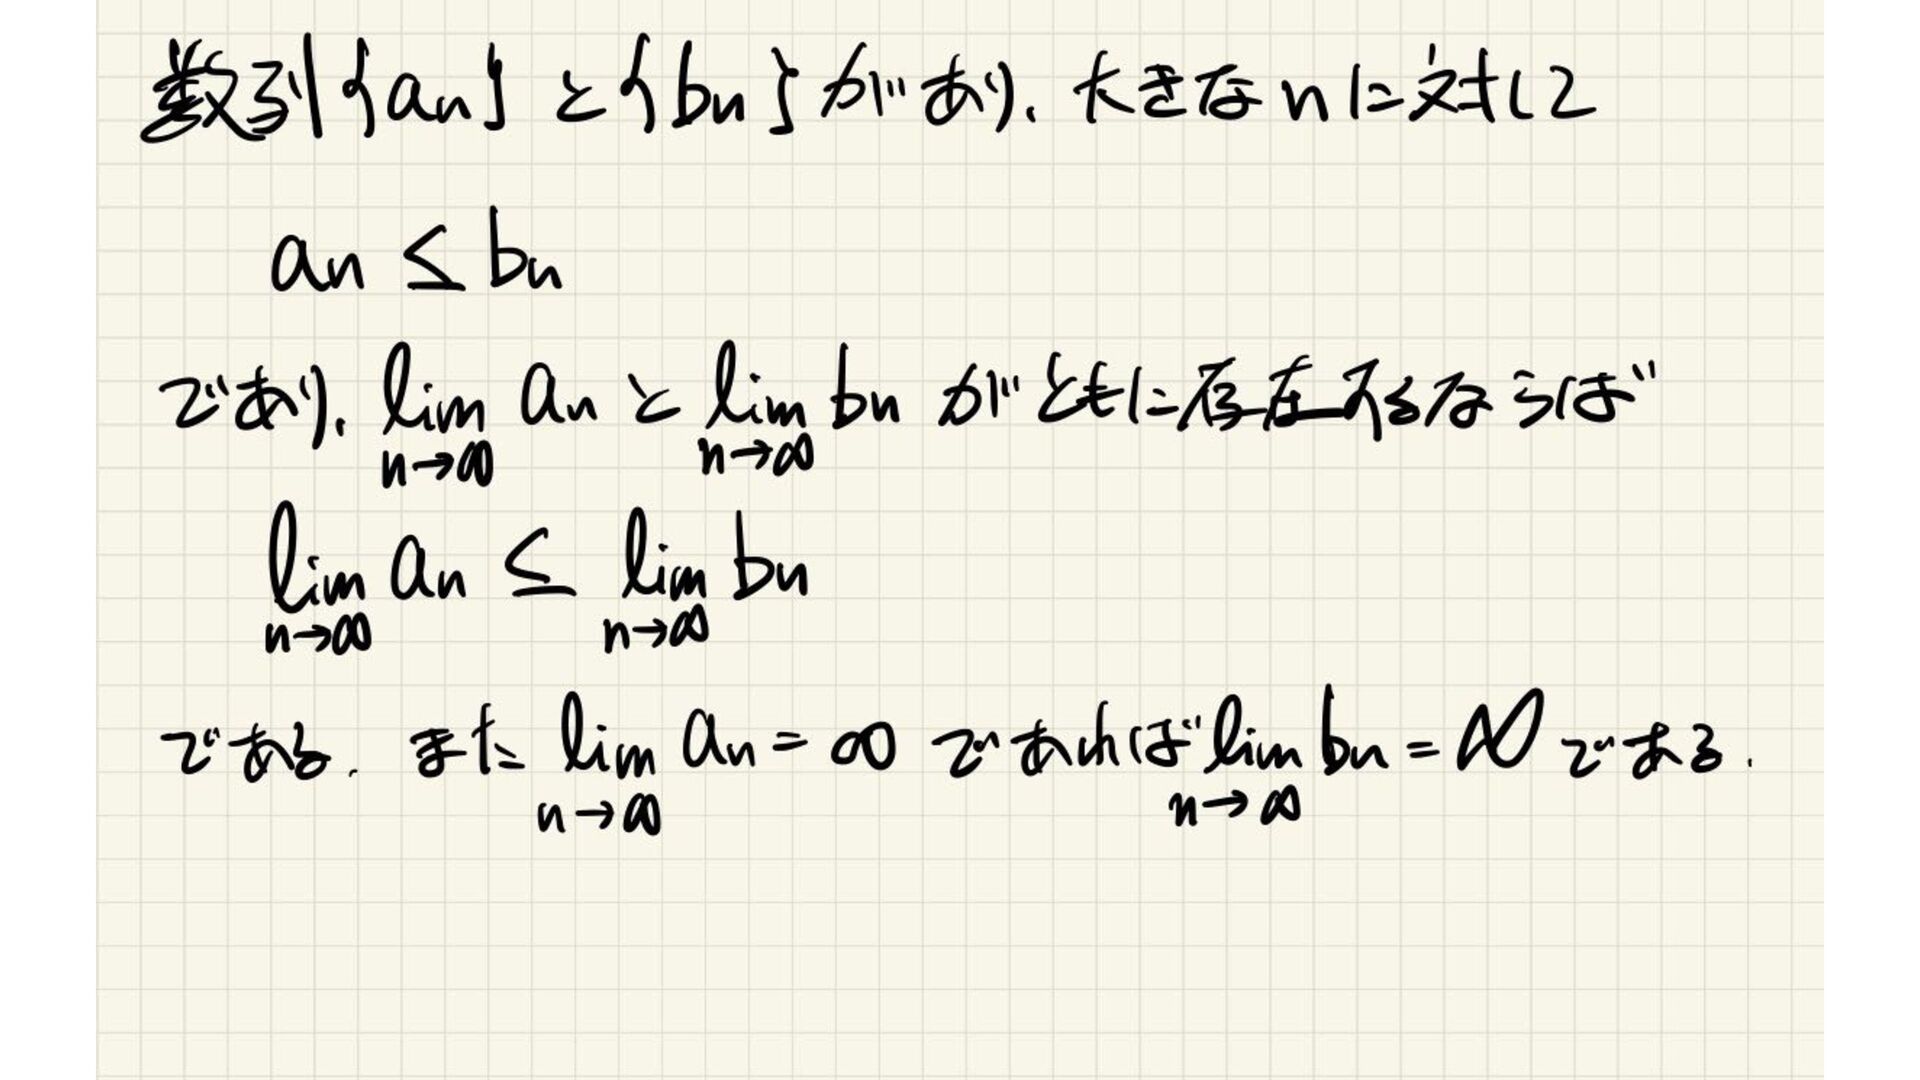 数列{an}と{bn}があり、大きなnに対して
an ≦ bn
であり、lim n→∞ an と lim n→∞ bn がともに存在するならば
lim n→∞ an ≦ lim n→∞ bn
である. また lim n→∞ an = ∞ であれば lim n→∞ bn = ∞ である.